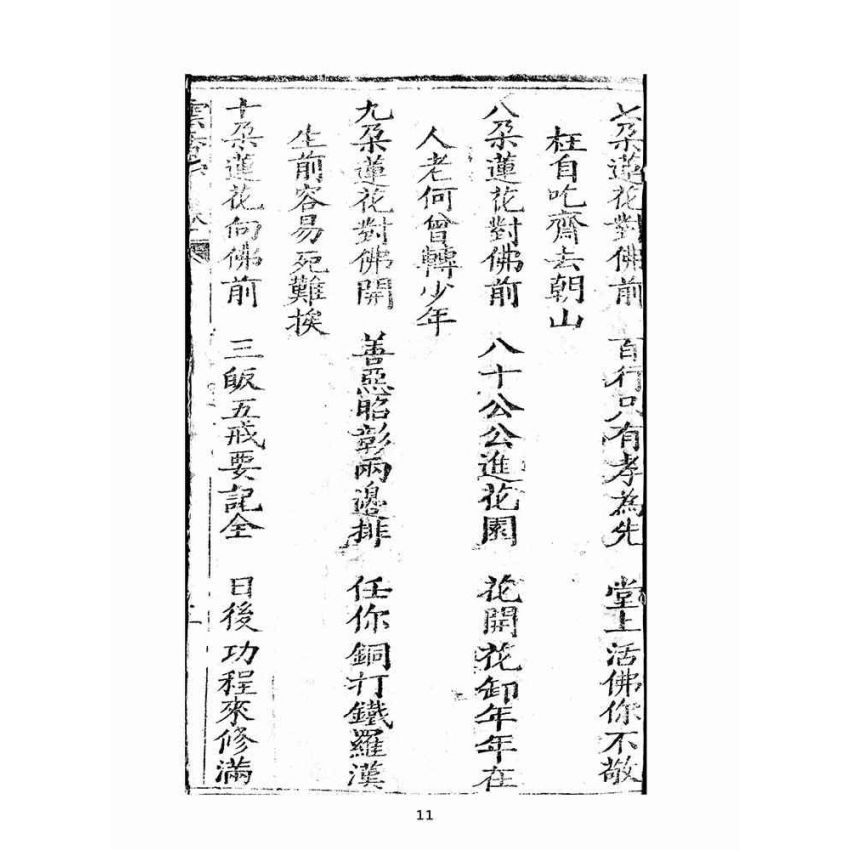 七朶蓮花對佛前 百行只有孝為先 堂上活佛你不敬
枉自吃齋去朝山
八朶蓮花對佛前 八十公公進花園 花開花卸年年在
人老何曾轉少年
九朶蓮花對佛開 善惡昭彰兩邊排 任你銅打鐵羅漢
生前容易死難挨
十朶蓮花向佛前 三皈五戒要記全 日後功程來修滿
11